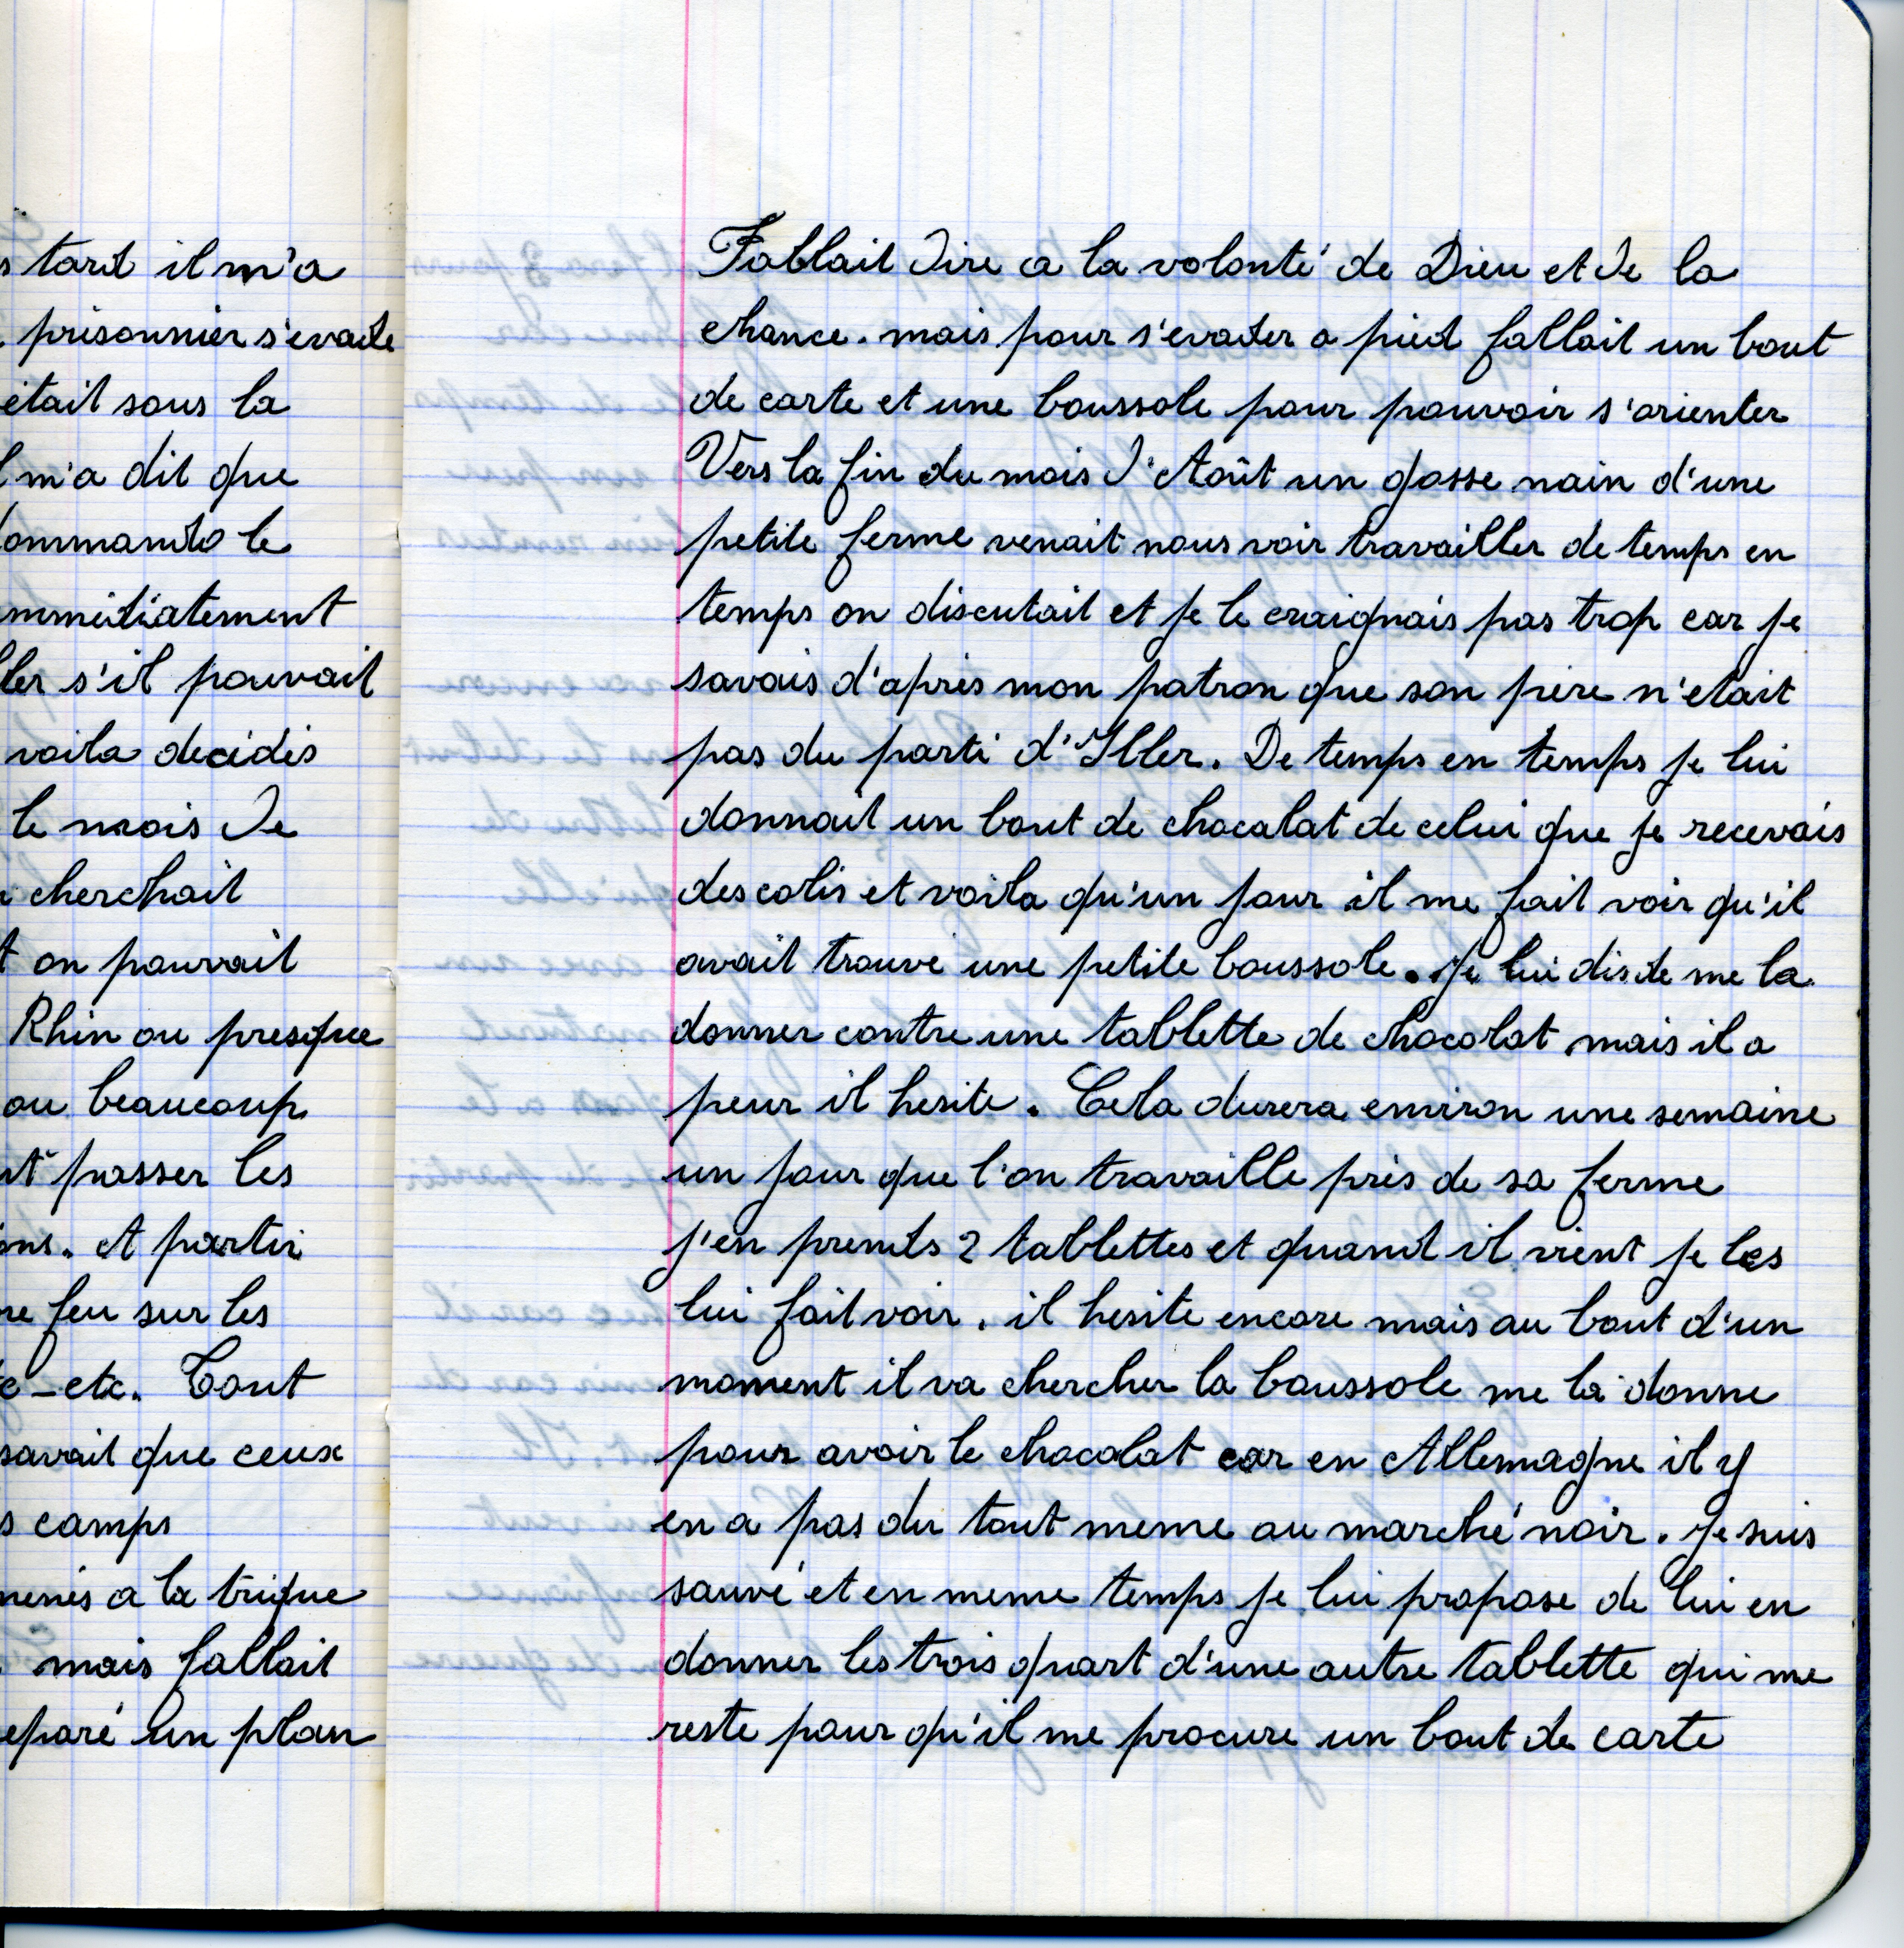 s tard il m'a
prisonnier s'evade
était sous la
m'a dit que
ommando le
mmediatement
ler s'il pouvait
voila decidés
le mois de
cherchait
on pouvait
Rhin ou presque
ou beaucoup
passer les
ons. et partir
feu sur les
c-etc. Tout
savait que ceux
s camps
menés a la trique
mais fallait
eparé un plan
Fallait dire a la volonté de Dieu et de la
chance. mais pour s'evader a pied fallait un bout
de carte et une boussole pour pouvoir s'orienter
Vers la fin du mois d'Août un gosse nain d'une
petite ferme venait nous voir travailler de temps en
temps on discutait et je le craignais pas trop car je
savais d'après mon patron que son père n'etait
pas du parti d'Itler. De temps en temps je lui
donnait un bout de chocolat de celui que je recevais
des colis et voila qu'un jour il me fait voir qu'il
avait trouvé une petite boussole. Je lui dis de me la
donner contre une tablette de chocolat mais il a
peur il hesite. Cela durera environ une semaine
un jour que l'on travaille près de sa ferme
j'en prends 2 tablettes et quand il vient je les
lui fait voir. il hesite encore mais au bout d'un
moment il va chercher la boussole me la donne
pour avoir le chocolat car en Allemagne il y
en a pas du tout meme au marché noir. Je suis
sauvé et en meme temps je lui propose de lui en
donner les trois quart d'une autre tablette qui me
reste pour qu'il me procure un bout de carte